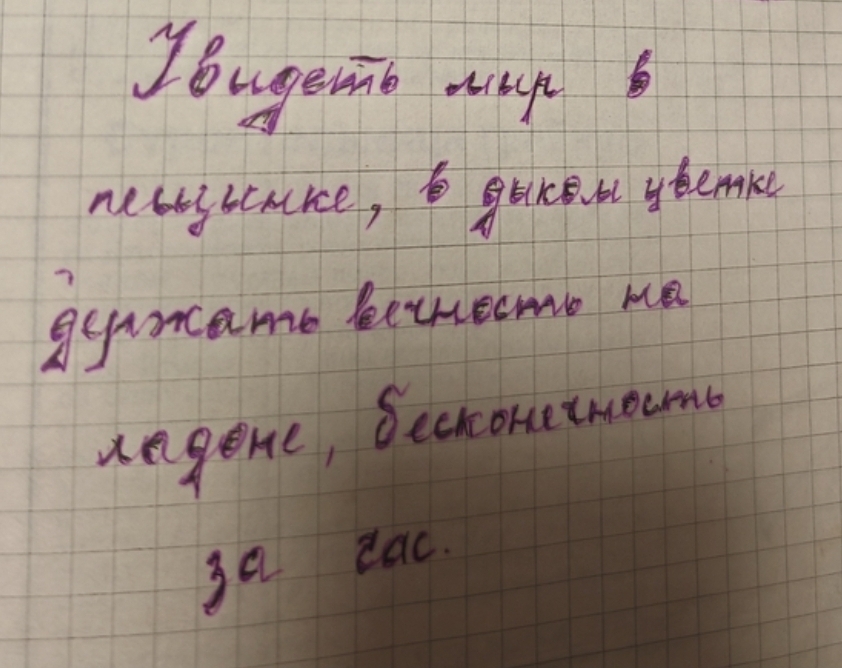 Увидеть мир в
песцинке, в диком цветке
держать вечность на
ладоне, бесконечность
за час.